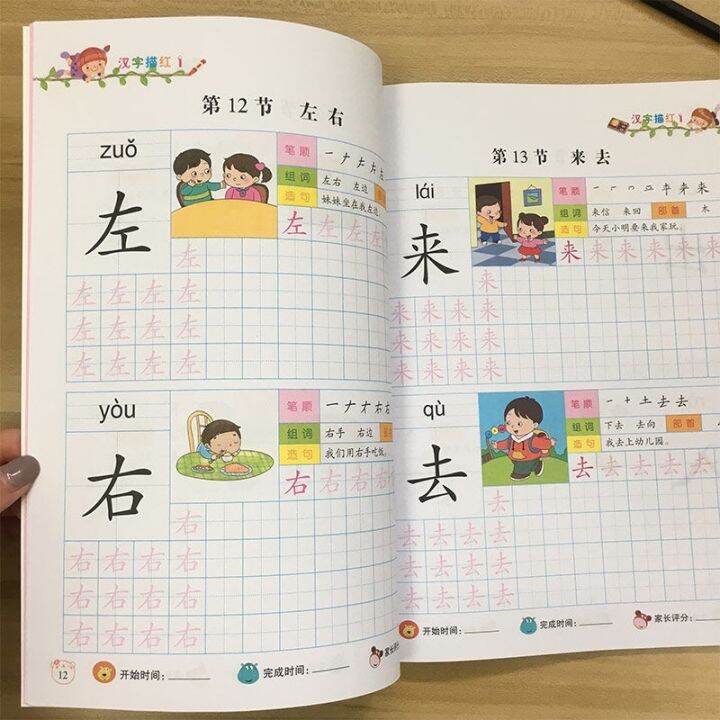 汉字描红1
第12节 左右
zuǒ
左
笔顺
组词 左右 左边
造句 妹妹坐在我左边。
左 左 左 左
左
左 左 左 左 左
左 左 左 左 左
左 左 左 左 左
yòu
右
笔顺 一 ナ 才 右 右
组词 右手 右边
造句 我们用右手吃饭。
右 右 右 右
右
右 右 右 右
右 右 右 右
右 右 右 右
12 开始时间: 完成时间: 家长评分
汉字描红1
第13节 来去
lái
来
笔顺 一 来 来
组词 来信 来回 部首 木
造句 今天小明要来我家玩。
来 来 来 来 来 来
来
来 来 来 来
来 来 来 来
来 来 来 来
qù
去
笔顺 一 十 土 去 去
组词 下去 去向 部首
造句 我去上幼儿园。
去 去 去 去 去
去
去 去 去 去
去 去 去 去
去 去 去 去
开始时间: 完成时间: 家长评分: